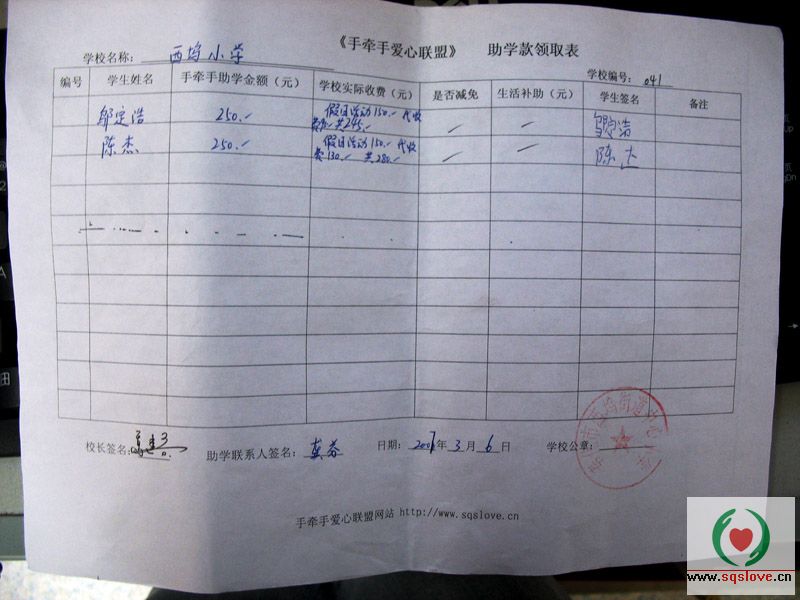 《手牵手爱心联盟》 助学款领取表
学校名称: 西坞小学
学校编号: 041
编号 学生姓名 手牵手助学金额(元) 学校实际收费(元) 是否减免 生活补助(元) 学生签名 备注
邬定浩 250.- 假日活动150.- 代收 / / 邬定浩
共245.-
陈杰 250.- 假日活动150.- 代收 / / 陈杰
费130.- 共280.-
校长签名: 助学联系人签名: 日期: 2007年3月6日 学校公章:
手牵手爱心联盟网站 http://www.sqslove.cn
www.sqslove.cn